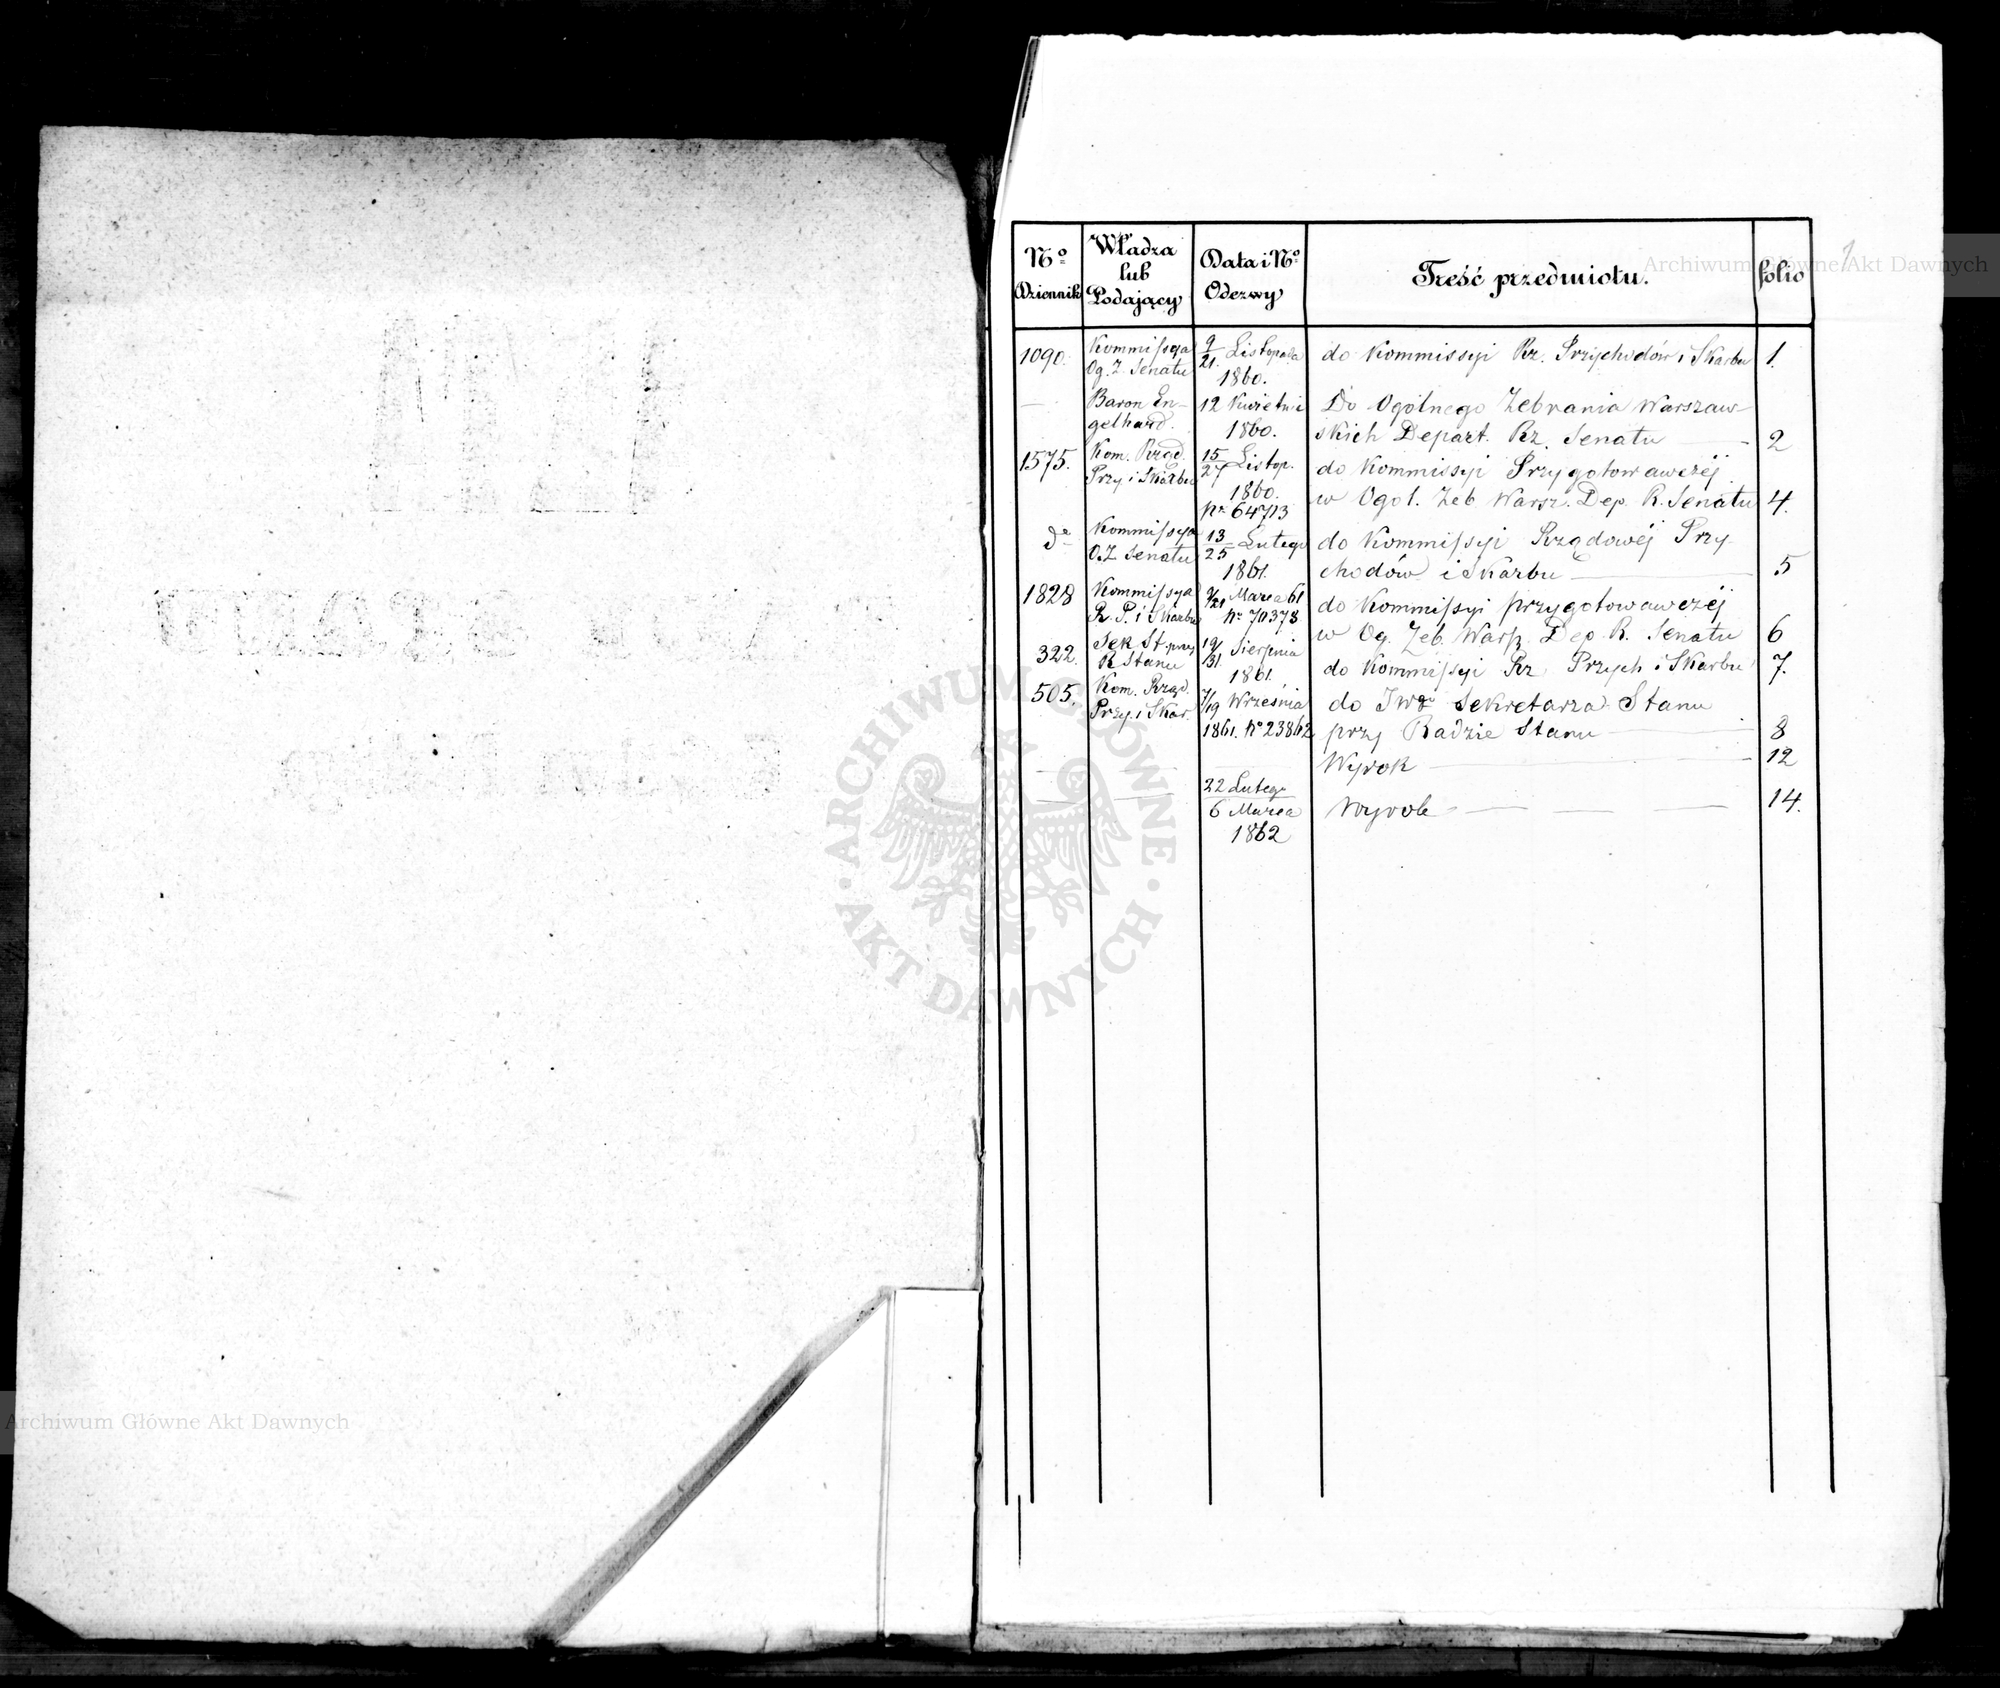 No Dziennik
Władza lub Podający
Data i No Odezwy
Treść przedmiotu.
folio
1
1090.
Kommissya
Og. Z. Senatu
9/21. Listopada
1860.
do Kommissyi Rz. Przychodów i Skarbu
1.
—
Baron En-
gelhard.
12 Kwietnia
1860.
Do Ogólnego Zebrania Warszaw-
skich Depart. Rz. Senatu
2
1575.
Kom. Rząd.
Przy. i Skarbu
15/27 Listop.
1860.
Nr 64713
do Kommissyi Przygotowawczéj
w Ogol. Zeb. Warsz. Dep. R. Senatu
4.
do
Kommissya
O.Z Senatu
13/25 Lutego
1861.
do Kommissyi Rządowéj Przy-
chodów i Skarbu
5
1828
Kommissya
R. P. i Skarbu
9/21 Marca 61
Nr 70378
do Kommissyi przygotowawczéj
w Og. Zeb. Warsz. Dep. R. Senatu
6
322.
Sek St. przy
R Stanu
19/31. Sierpnia
1861.
do Kommissyi Rz Przych i Skarbu
7.
505.
Kom. Rząd.
Przy. i Skar.
7/19 Września
1861. No 23862
do Sekretarza Stanu
przy Radzie Stanu
8
Wyrok
12
22 Lutego
6 Marca
1862
Wyrok
14.
Archiwum Główne Akt Dawnych
ARCHIWUM GŁÓWNE
· AKT DAWNYCH ·
Archiwum Główne Akt Dawnych